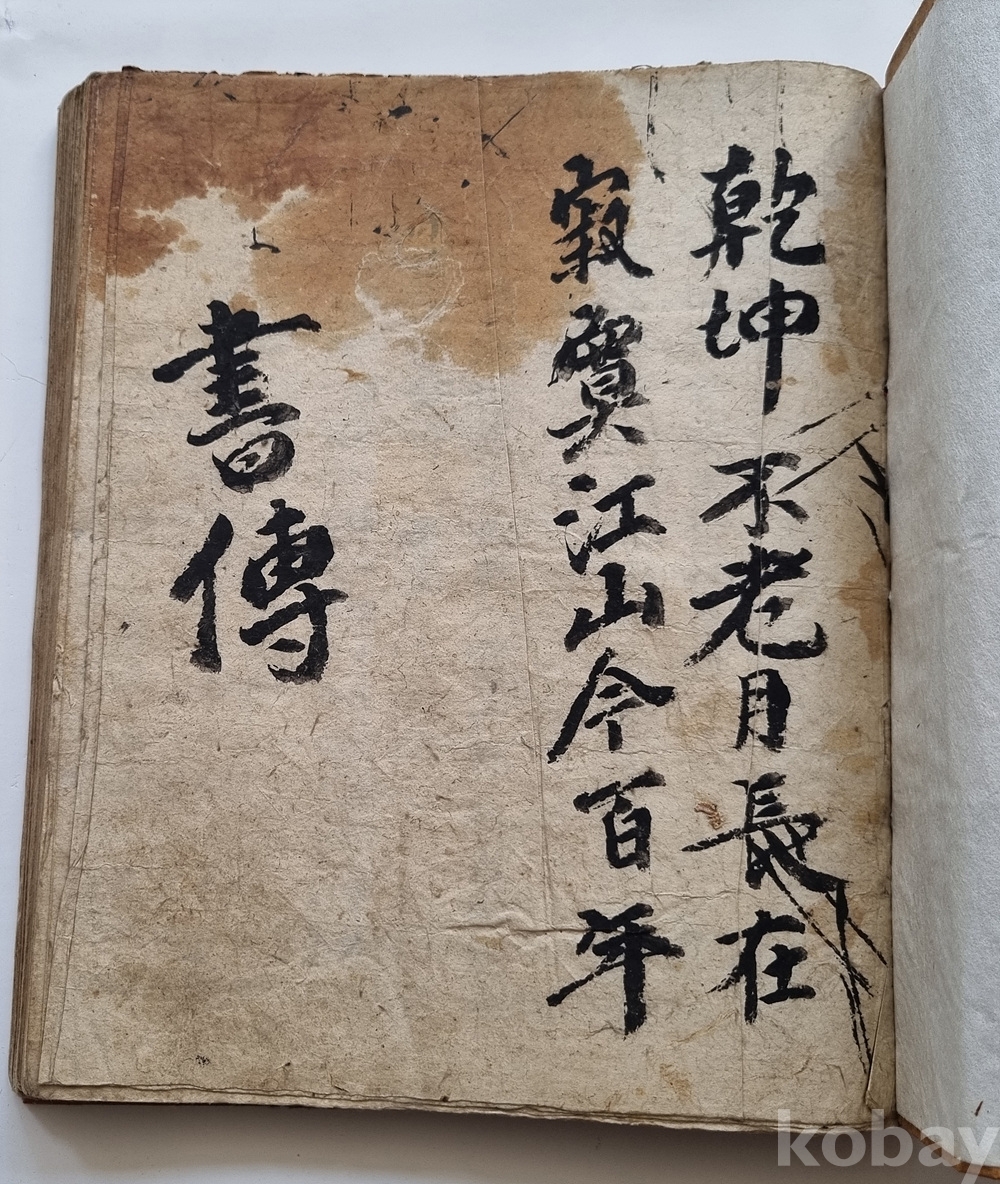 乾坤不老月長在
寂寞江山今百年
書傳
kobay